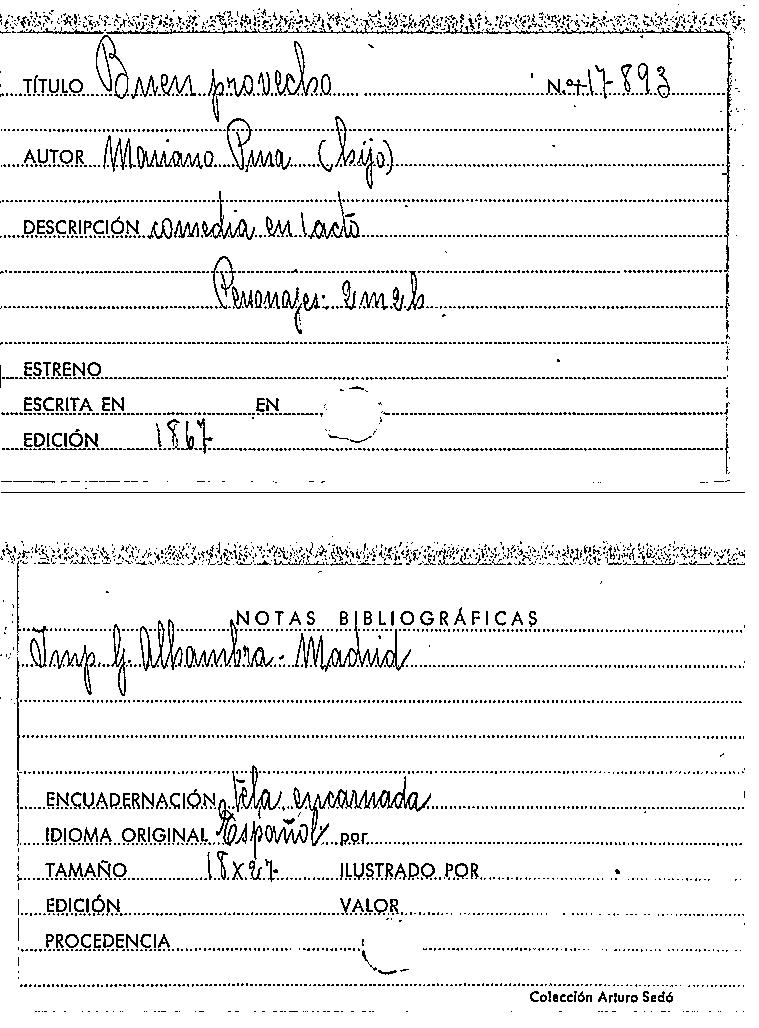 TÍTULO Buen provecho N.º 17-893
AUTOR Mariano Pina (hijo)
DESCRIPCIÓN comedia en 1 acto
Personajes: 2m2h
ESTRENO
ESCRITA EN EN
EDICIÓN 1867
NOTAS BIBLIOGRÁFICAS
Imp. G. Alhambra - Madrid
ENCUADERNACIÓN tela encarnada
IDIOMA ORIGINAL Español por
TAMAÑO 18x27 ILUSTRADO POR
EDICIÓN VALOR
PROCEDENCIA
Colección Arturo Sedó